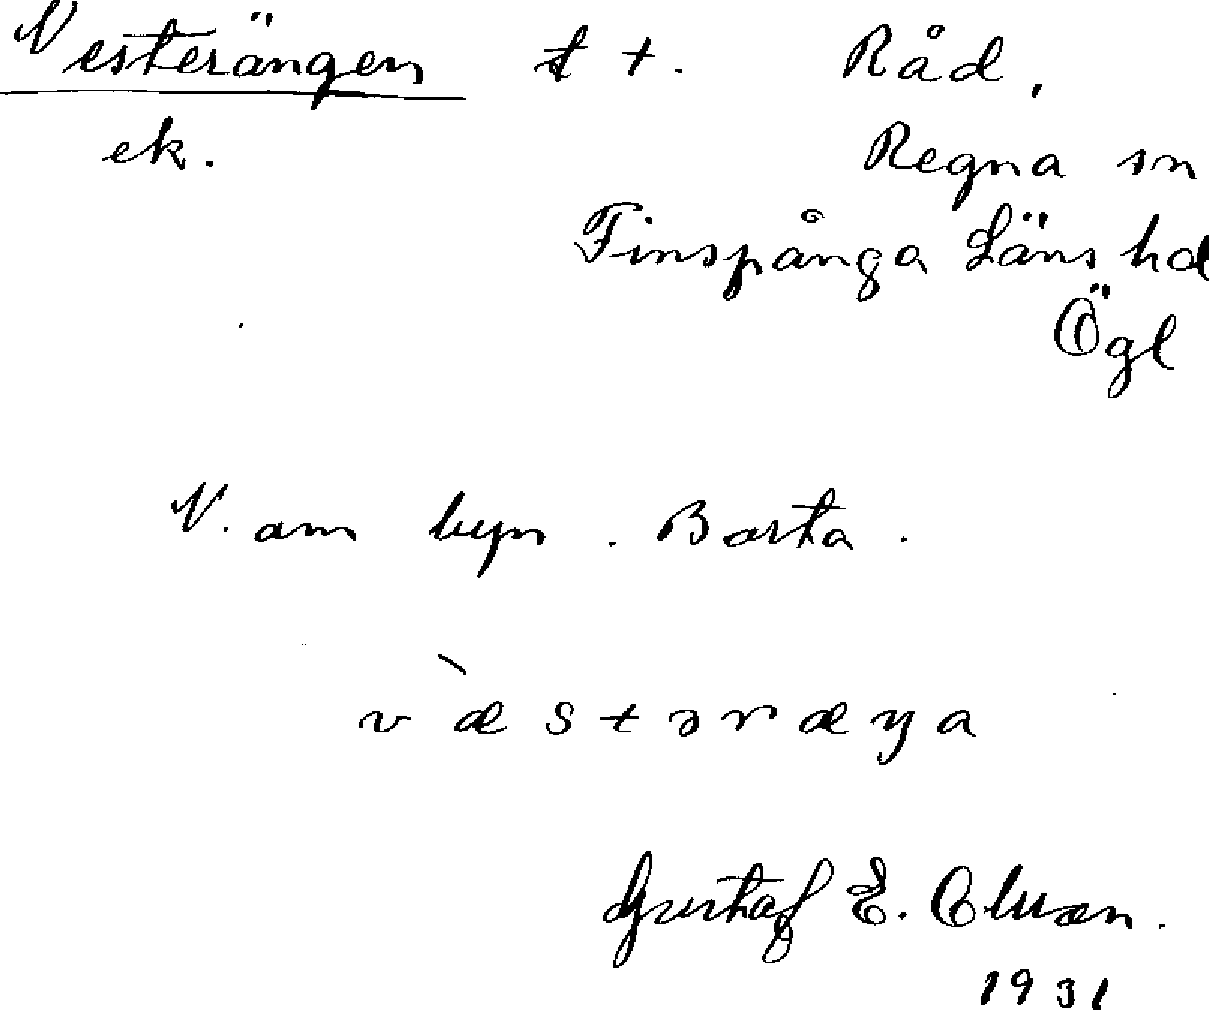 Vesterängen t t. Råd,
ek. Regna sn
Finspånga Läns hd
Ögl
V. om byn. Borta.
væstəræŋa
Gustaf E. Olsson.
1931